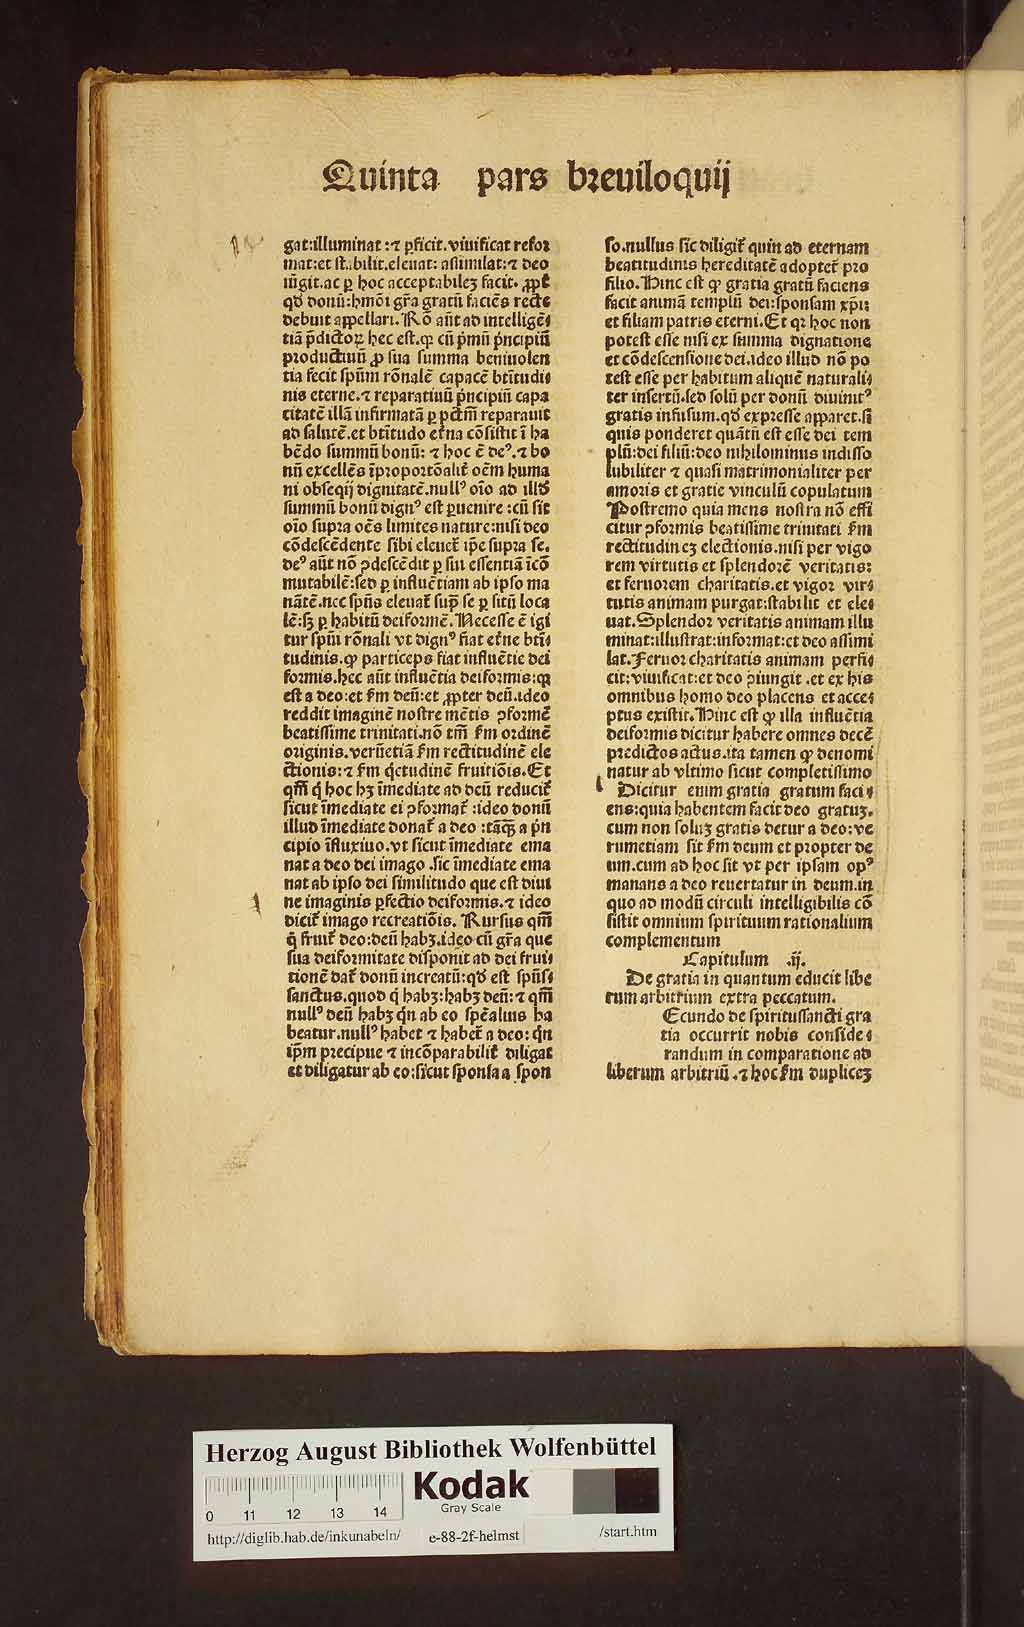 Quinta pars breuiloquij
gat:illuminat:⁊ ꝑficit.viuificat refor
mat:et stabilit.eleuat: assimilat:⁊ deo
iūgit.ac ꝑ hoc acceptabileꝫ facit. ꝓpt̄
qd̄ donū:hmōi gr̄a gratū faciēs recte
debuit appellari. Rō aūt ad intelligē⸗
tiā p̄dictoꝝ hec est.ꝙ cū p̄mū p̄ncipiū
productiuū ꝓ sua summa beniuolen
tia fecit spūm rōnalē capacē btītudi⸗
nis eterne.⁊ reparatiuū p̄ncipiū capa
citatē illā infirmatā ꝑ pctm̄ reparauit
ad salutē.et btītudo et̄na cōsistit ī ha
bēdo summū bonū: ⁊ hoc ē deꝰ.⁊ bo
nū excellēs īproportōalit̄ oēm huma
ni obsequij dignitatē.nullꝰ oīo ad illd̄
summū bonū dignꝰ est ꝑuenire :cū sit
oīo supra oēs limites nature:nisi deo
cōdescēdente sibi eleuet̄ ip̄e supra se.
deꝰ aūt nō ꝯdescēdit ꝑ sui essentiā īcō
mutabilē:sed ꝑ influētiam ab ipso ma
nātē.nec spūs eleuat̄ sup̄ se ꝑ sitū loca
lē:sꝫ ꝑ habitū deiformē. Necesse ē igi
tur spūi rōnali vt dignꝰ fiat et̄ne btī⸗
tudinis.ꝙ particeps fiat influētie dei
formis.hec aūt influētia deiformis:qꝛ
est a deo:et fm̄ deū:et ꝓpter deū.ideo
reddit imaginē nostre mētis ꝯformē
beatissime trinitati.nō tm̄ fm̄ ordinē
originis.verūetiā fm̄ rectitudinē ele
ctionis:⁊ fm̄ q̇etudinē fruitiōis. Et
qm̄ q̇ hoc hꝫ īmediate ad deū reducit̄
sicut īmediate ei ꝯformat̄ :ideo donū
illud īmediate donat̄ a deo :tāqꝫ a p̄n
cipio īfluxiuo.vt sicut īmediate ema
nat a deo dei imago .sic īmediate ema
nat ab ipso dei similitudo que est diui
ne imaginis ꝑfectio deiformis.⁊ ideo
dicit̄ imago recreatiōis. Rursus qm̄
q̇ fruit̄ deo:deū habꝫ.ideo cū gr̄a que
sua deiformitate disponit ad dei frui⸗
tionē dat̄ donū increatū:qd̄ est spūs⸗
sanctus.quod q̇ habꝫ:habꝫ deū:⁊ qm̄
nullꝰ deū habꝫ qn̄ ab eo spēalius ha
beatur.nullꝰ habet ⁊ habet̄ a deo: qn̄
ip̄m precipue ⁊ incōparabilit̄ diligat
et diligatur ab eo:sicut sponsa a spon
so.nullus sic diligit̄ quin ad eternam
beatitudinis hereditatē adoptet̄ pro
filio. Hinc est ꝙ gratia gratū faciens
facit animā templū dei:sponsam xp̄i:
et filiam patris eterni. Et qꝛ hoc non
potest esse nisi ex summa dignatione
et cōdescensione dei.ideo illud nō po
test esse per habitum aliquē naturali⸗
ter insertū.sed solū per donū diuinitꝰ
gratis infusum.qd̄ expresse apparet.si
quis ponderet quātū est esse dei tem
plū:dei filiū:deo nihilominus indisso
lubiliter ⁊ quasi matrimonialiter per
amoris et gratie vinculū copulatum
Postremo quia mens nostra nō effi
citur ꝯformis beatissime trinitati fm̄
rectitudineꝫ electionis.nisi per vigo
rem virtutis et splendorē veritatis:
et feruorem charitatis.et vigor vir⸗
tutis animam purgat:stabilit et ele⸗
uat. Splendor veritatis animam illu
minat:illustrat:informat:et deo assimi
lat. Feruor charitatis animam perfi⸗
cit:viuificat:et deo ꝯiungit .et ex his
omnibus homo deo placens et acce⸗
ptus existit. Hinc est ꝙ illa influētia
deiformis dicitur habere omnes decē
predictos actus.ita tamen ꝙ denomi
natur ab vltimo sicut completissimo
Dicitur enim gratia gratum faci⸗
ens:quia habentem facit deo gratuꝫ.
cum non soluꝫ gratis detur a deo: ve
rumetiam sit fm̄ deum et propter de
um.cum ad hoc sit vt per ipsam opꝰ
manans a deo reuertatur in deum.in
quo ad modū circuli intelligibilis cō
sistit omnium spirituum rationalium
complementum
Capitulum .ij.
De gratia in quantum educit libe
rum arbitrium extra peccatum.
Ecundo de spiritussancti gra
tia occurrit nobis conside⸗
randum in comparatione ad
liberum arbitriū .⁊ hoc fm̄ dupliceꝫ
Herzog August Bibliothek Wolfenbüttel
Kodak
Gray Scale
0 11 12 13 14
http://diglib.hab.de/inkunabeln/ e-88-2f-helmst /start.htm